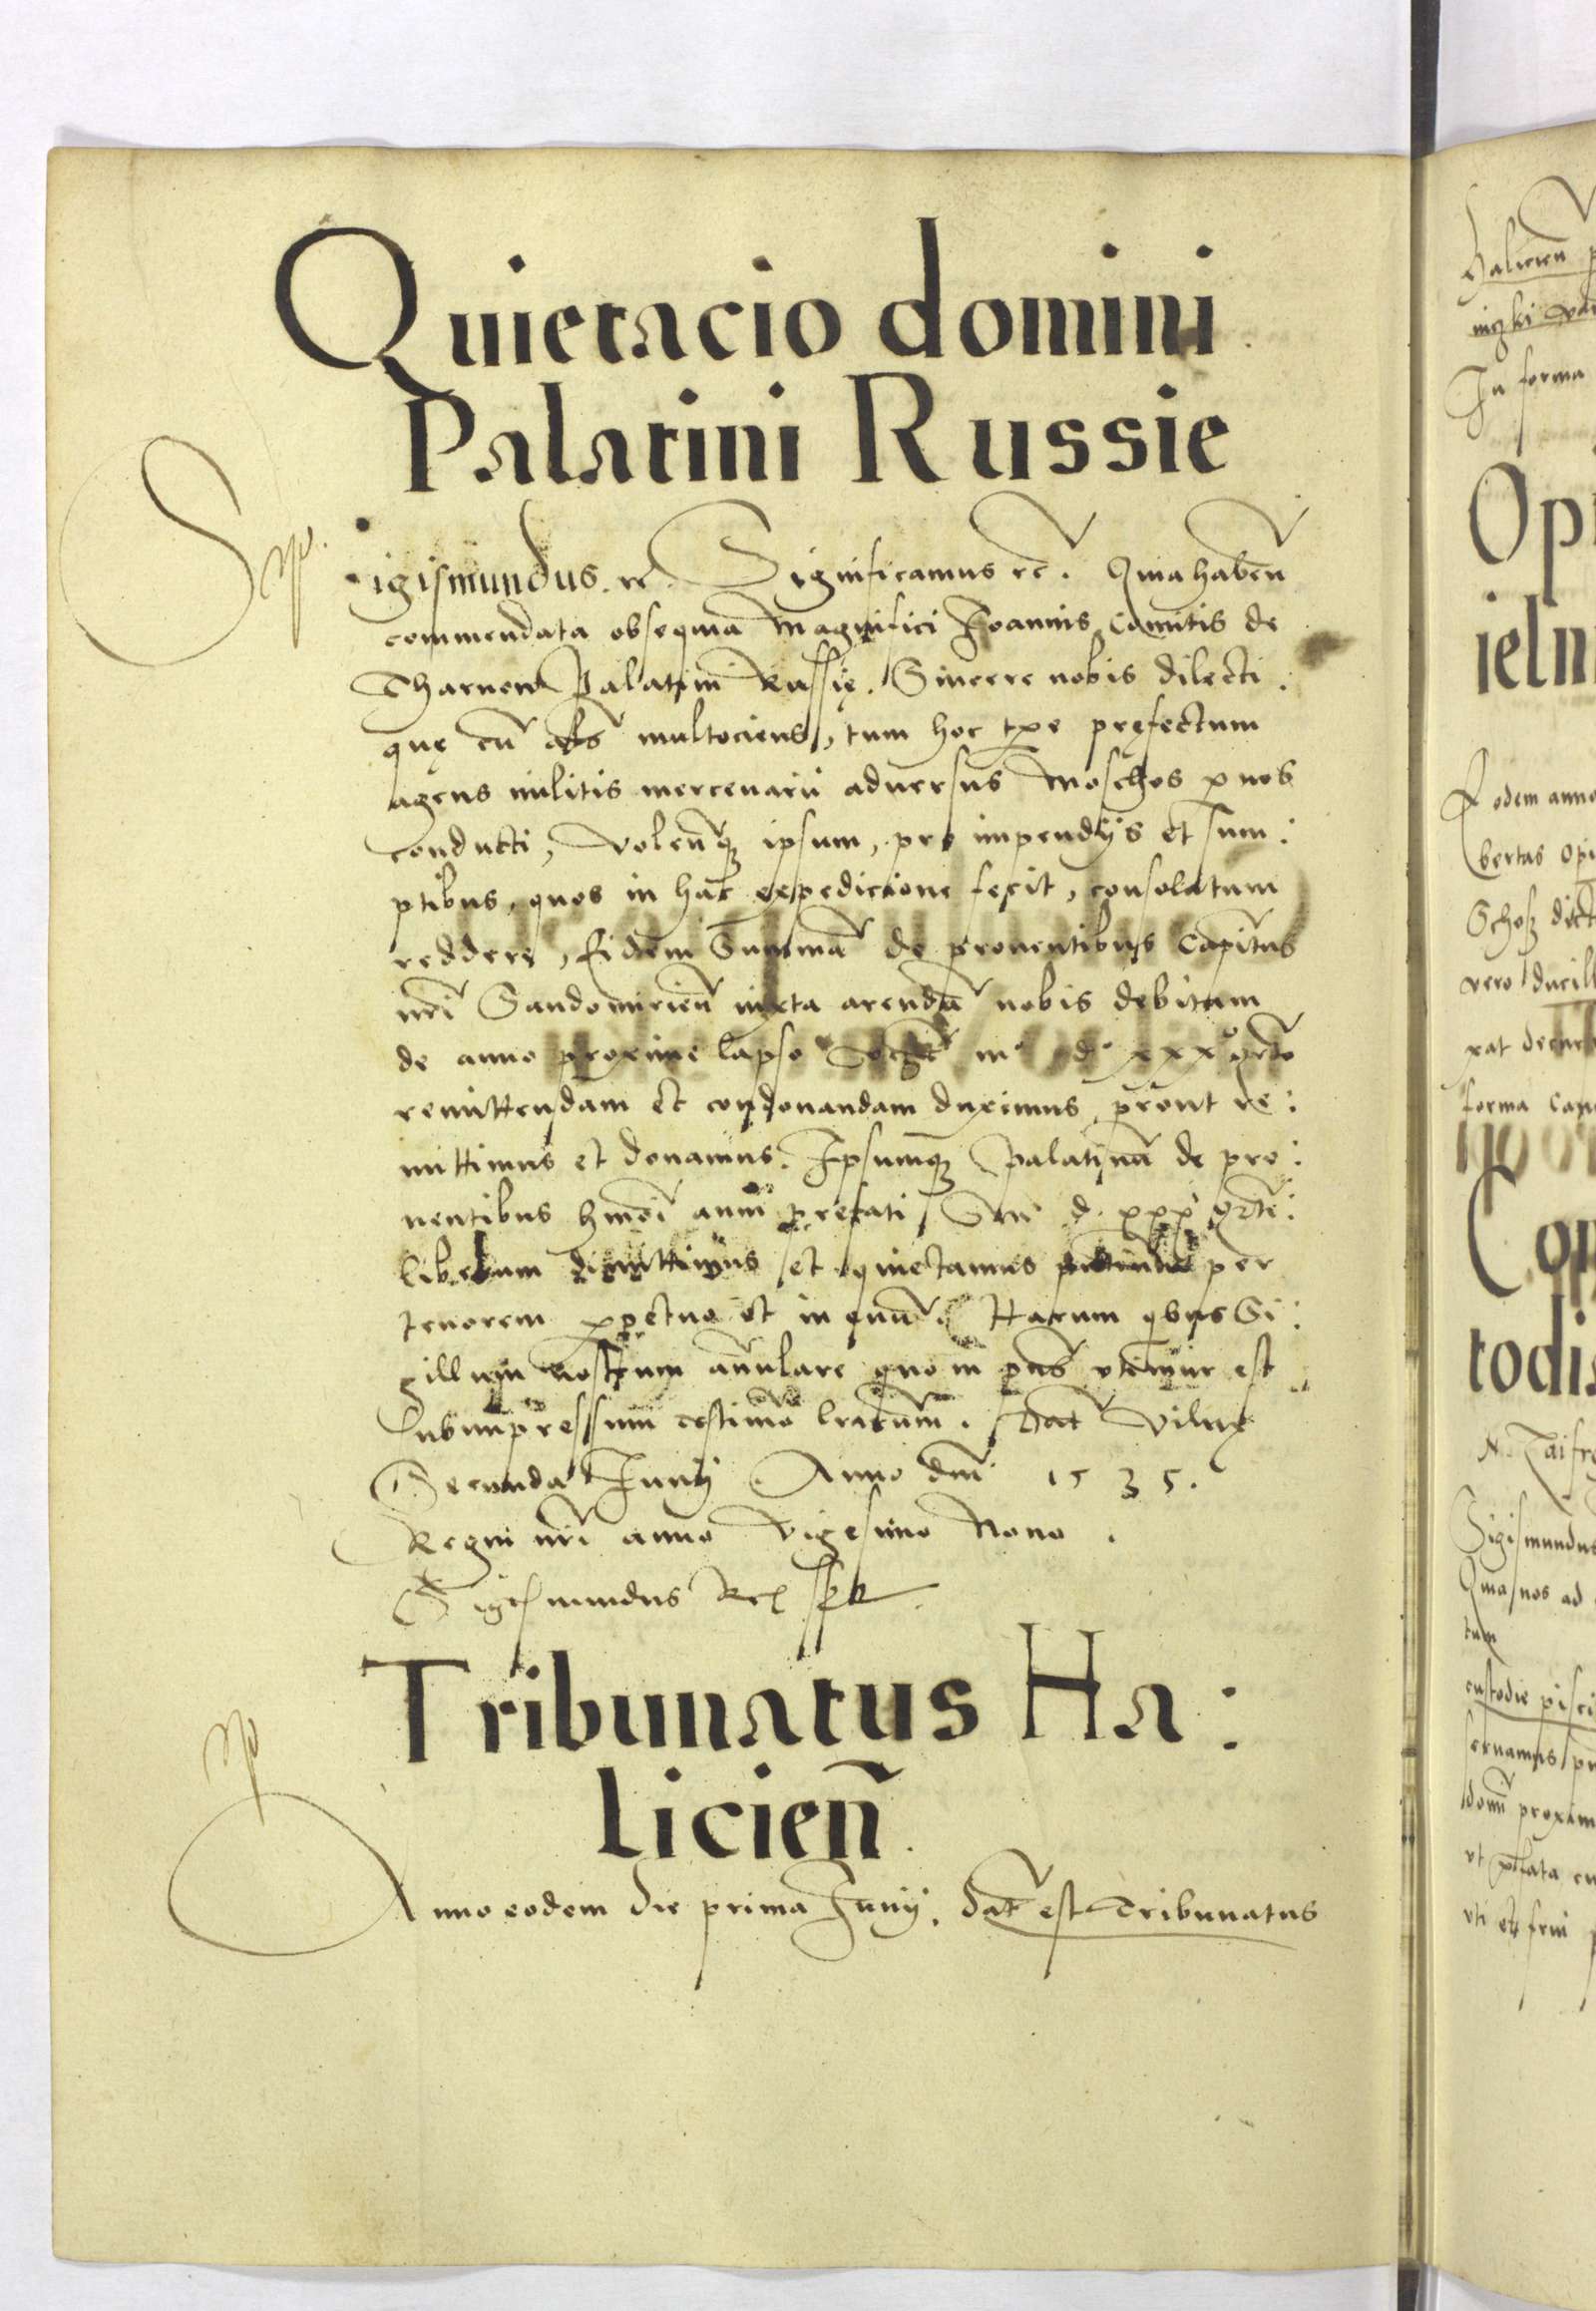 Quietacio domini
Palatini Russie
Sigismundus. rc. Significamus rc. Quia habeñ
commendata obsequia Magnifici Joannis Comitis de
Tharnow Palatini Russię. Sincere nobis dilecti.
quę cũ als multociens, tum hoc tp̃e pręfectum
agens militis mercenarii aduersus Moschos p nos
conducti, volenq; ipsum, pro impendijs et sum:
ptibus, quos in hac expedicione fecit, consolatum
reddere, Eidem Summã de prouentibus Capit̃us
nr̃i Sandomirieñ iuxta arendã nobis debitam
de anno proxime lapso m° d° xxx° qrto
remittendam et condonandam duximus, prout re:
mittimus et donamus. Ipsumq; Palatinũ de pro:
uentibus hm̃oi anni prefati d. xxx qrti:
liberum dimittimus et quietamus per
tenorem ppetuo et in euũ. Harum qbus Si:
gillum nostrum annulare quo in pñs vtemur est
Subimpressum testimõ lrarum. Dat Vilnę
Secunda Junij Anno dñi 1535.
Regni nr̃i anno Vigesimo Nono.
Sigismundus Rex sst
Tribunatus Ha:
licieñ.
Anno eodem die prima Junij. dat̃ est Tribunatus
Halicieñ
In forma
Op
ieln
Eodem anno
bertas
Schosz dict
vero
forma
Co
todi
Sigismundus
Quia nos ad
tum
custodie
proxim
vt